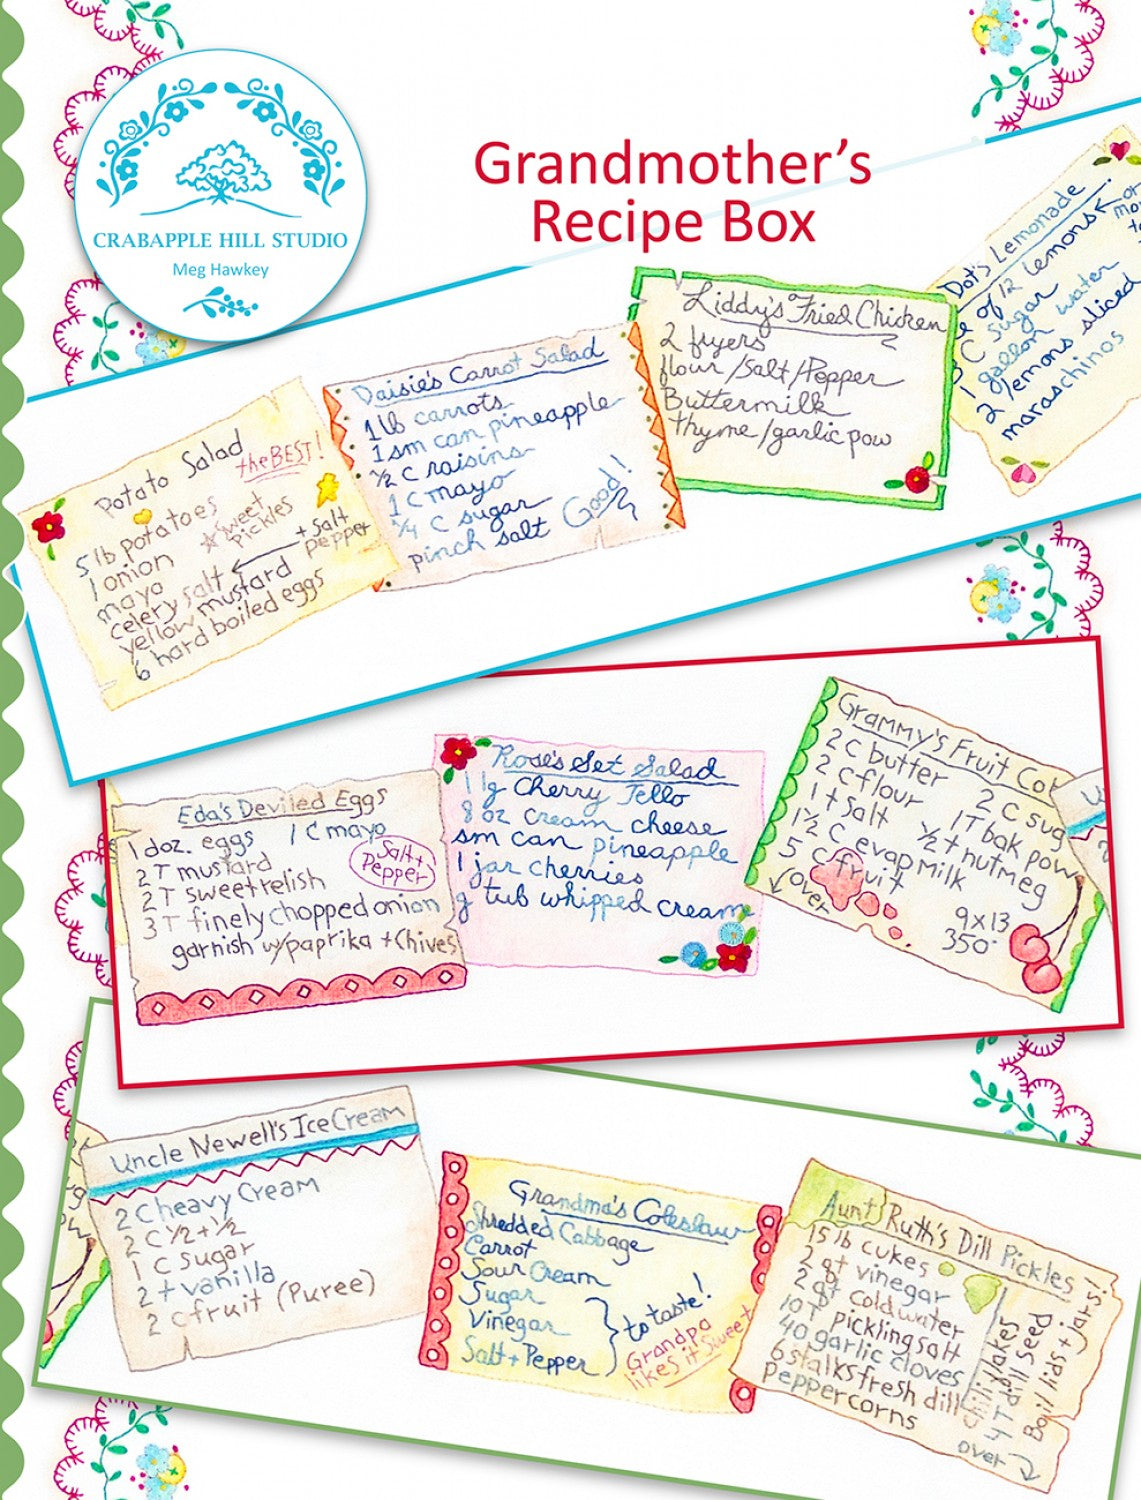 CRABAPPLE HILL STUDIO
Meg Hawkey
Grandmother's
Recipe Box
Potato Salad
the BEST!
5 lb potatoes
1 onion
mayo
celery salt
yellow mustard
6 hard boiled eggs
sweet
pickles
+ Salt
pepper
Daisie's Carrot Salad
1 lb carrots
1 sm can pineapple
½ C raisins
1 C mayo
¼ C sugar
pinch salt
Good!
Liddy's Fried Chicken
2 fryers
flour/Salt/Pepper
Buttermilk
thyme/garlic pow
Dot's Lemonade
of 12 lemons
or
C sugar
1 gallon water
2 lemons sliced
maraschinos
Eda's Deviled Eggs
1 doz. eggs 1 C mayo
2 T mustard
2 T sweet relish
3 T finely chopped onion
garnish w/paprika + Chives
Salt +
Pepper
Rose's Set Salad
1 lg Cherry Jello
8 oz cream cheese
sm can pineapple
1 jar cherries
g tub whipped cream
Grammy's Fruit Cob
2 C butter 2 C sug
2 C flour 1 T bak pow
1 t salt ½ t nutmeg
1½ C evap milk
5 C fruit
over
9x13
350°
Uncle Newell's Ice Cream
2 C heavy Cream
2 C ½ + ½
1 C sugar
2 t vanilla
2 C fruit (Puree)
Grandma's Coleslaw
Shredded Cabbage
Carrot
Sour Cream
Sugar
Vinegar
Salt + Pepper
to taste!
Grandpa
likes it Sweet
Aunt Ruth's Dill Pickles
15 lb cukes
2 qt vinegar
2 qt cold water
10 T pickling salt
40 garlic cloves
6 stalks fresh dill
peppercorns
chili flakes
4 T dill seed
Boil lids + jars!
over